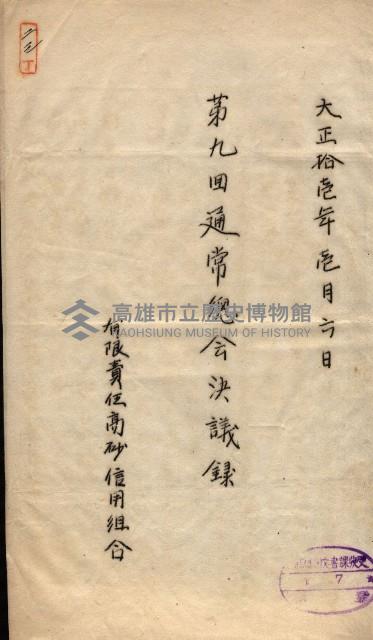 大正拾壱年壱月六日
第九回通常總会決議録
有限責任高砂信用組合
高雄市立歷史博物館
KAOHSIUNG MUSEUM OF HISTORY
7